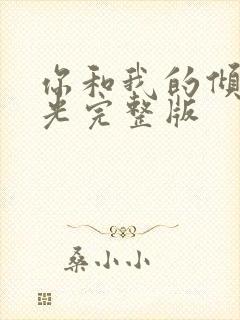 你和我的倾
光完整版
桑小小